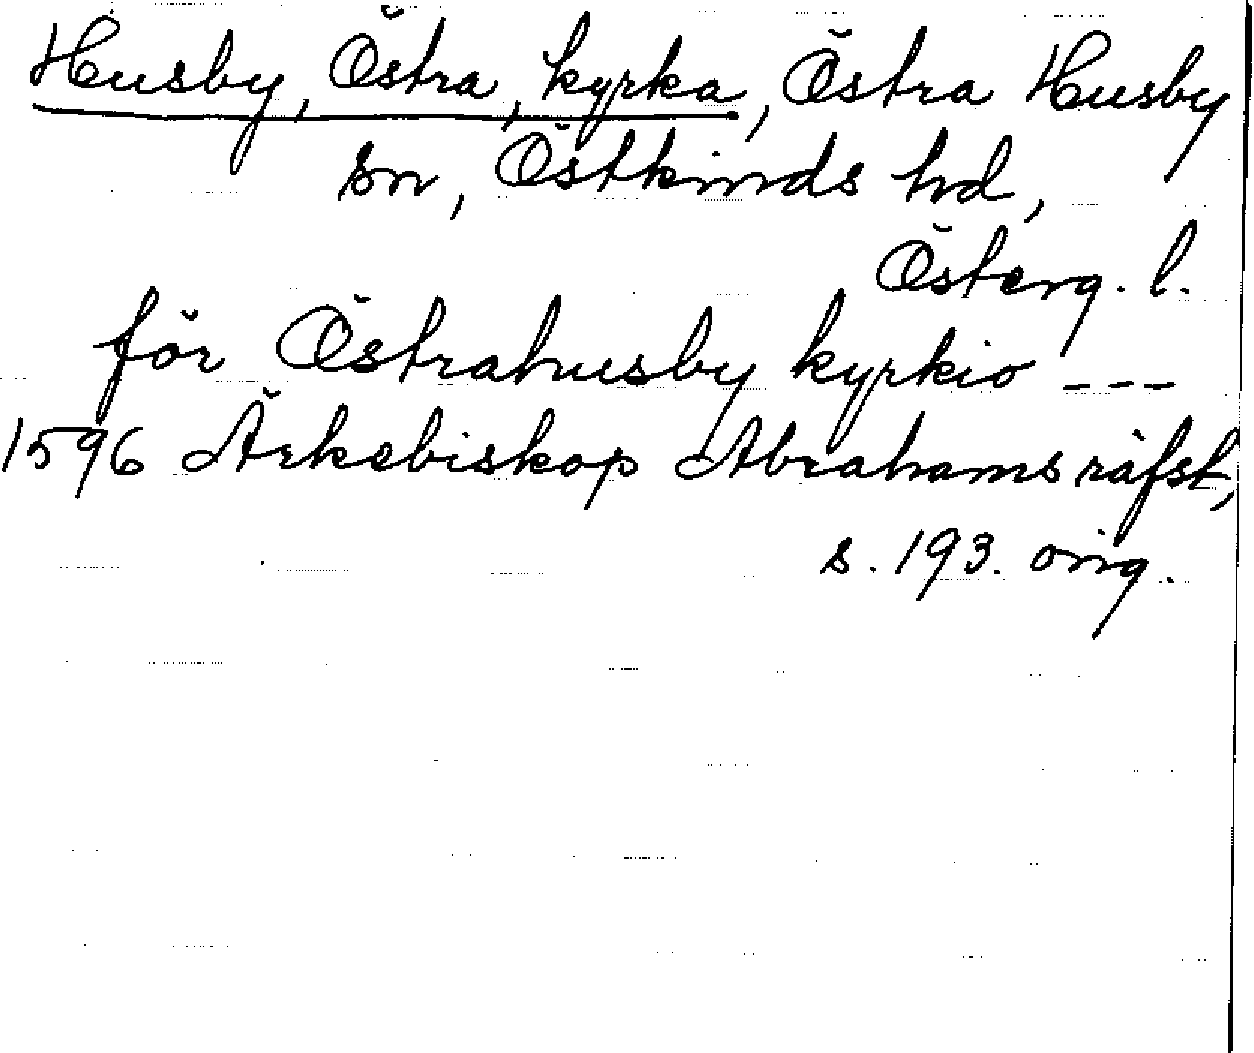 Husby, Östra, kyrka, Östra Husby
sn, Östkinds hd,
Österg. l.
för Östrahusby kyrkio ---
1596 Ärkebiskop Abrahams räfst,
s. 193. orig.